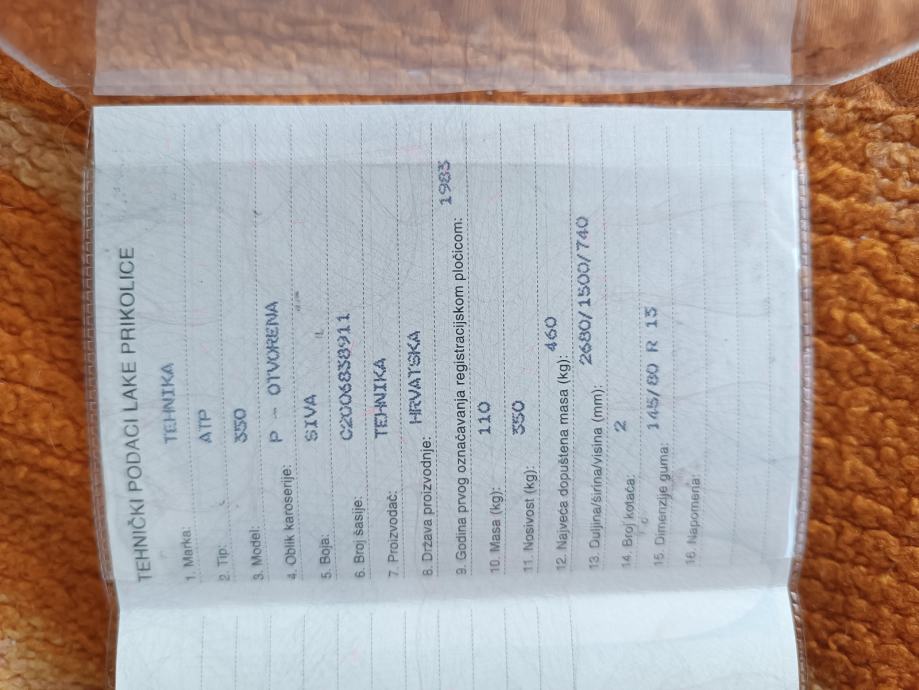 TEHNIČKI PODACI LAKE PRIKOLICE
1. Marka: TEHNIKA
2. Tip: ATP
3. Model: 350
4. Oblik karoserije: P - OTVORENA
5. Boja: SIVA
6. Broj šasije: C2006838911
7. Proizvođač: TEHNIKA
8. Država proizvodnje: HRVATSKA
9. Godina prvog označavanja registracijskom pločicom: 1983
10. Masa (kg): 110
11. Nosivost (kg): 350
12. Najveća dopuštena masa (kg): 460
13. Duljina/širina/visina (mm): 2680/1500/740
14. Broj kotača: 2
15. Dimenzije guma: 145/80 R 13
16. Napomena: